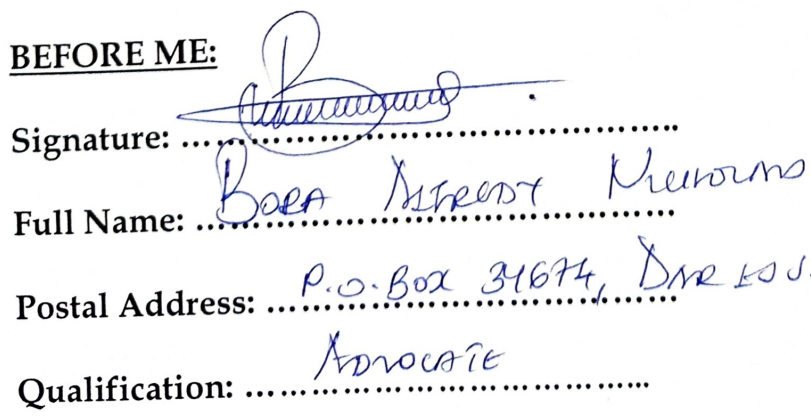 BEFORE ME:
Signature: ……………………………………………..
Full Name: BORA ALFREDY ……………………………………………
Postal Address: P.O. BOX 34674, DAR ……………………………………
Qualification: ADVOCATE ……………………………………...